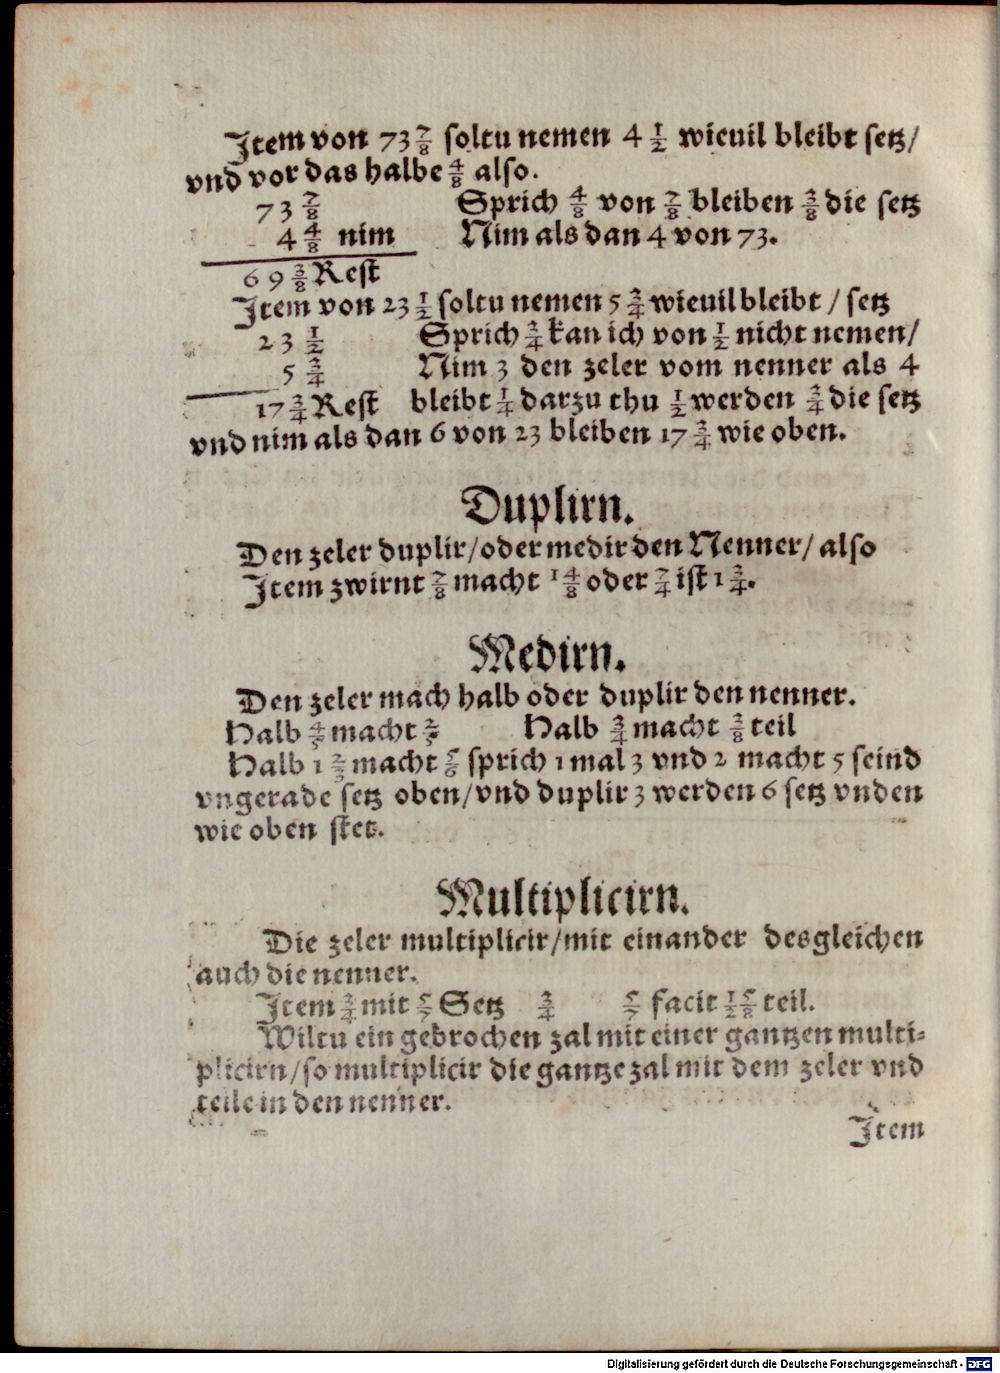 Item von 73 7/8 soltu nemen 4 1/2 wieuil bleibt setz/
vnd vor das halbe 4/8 also.
73 7/8 Sprich 4/8 von 7/8 bleiben 3/8 die setz
4 4/8 nim Nim als dan 4 von 73.
69 3/8 Rest
Item von 23 1/2 soltu nemen 5 3/4 wieuil bleibt / setz
23 1/2 Sprich 3/4 kan ich von 1/2 nicht nemen/
5 3/4 Nim 3 den zeler vom nenner als 4
17 3/4 Rest bleibt 1/4 darzu thu 1/2 werden 3/4 die setz
vnd nim als dan 6 von 23 bleiben 17 3/4 wie oben.
Duplirn.
Den zeler duplir/oder medir den Nenner/ also
Item zwirnt 7/8 macht 1 4/8 oder 7/4 ist 1 3/4.
Medirn.
Den zeler mach halb oder duplir den nenner.
Halb 4/5 macht 2/5 Halb 3/4 macht 3/8 teil
Halb 1 2/3 macht 5/6 sprich 1 mal 3 vnd 2 macht 5 seind
vngerade setz oben/vnd duplir 3 werden 6 setz vnden
wie oben stet.
Multiplicirn.
Die zeler multiplicir/mit einander desgleichen
auch die nenner.
Item 3/4 mit 5/7 Setz 3/4 5/7 facit 15/28 teil.
Wiltu ein gebrochen zal mit einer gantzen multi=
plicirn/so multiplicir die gantze zal mit dem zeler vnd
teile in den nenner.
Item
Digitalisierung gefördert durch die Deutsche Forschungsgemeinschaft - DFG